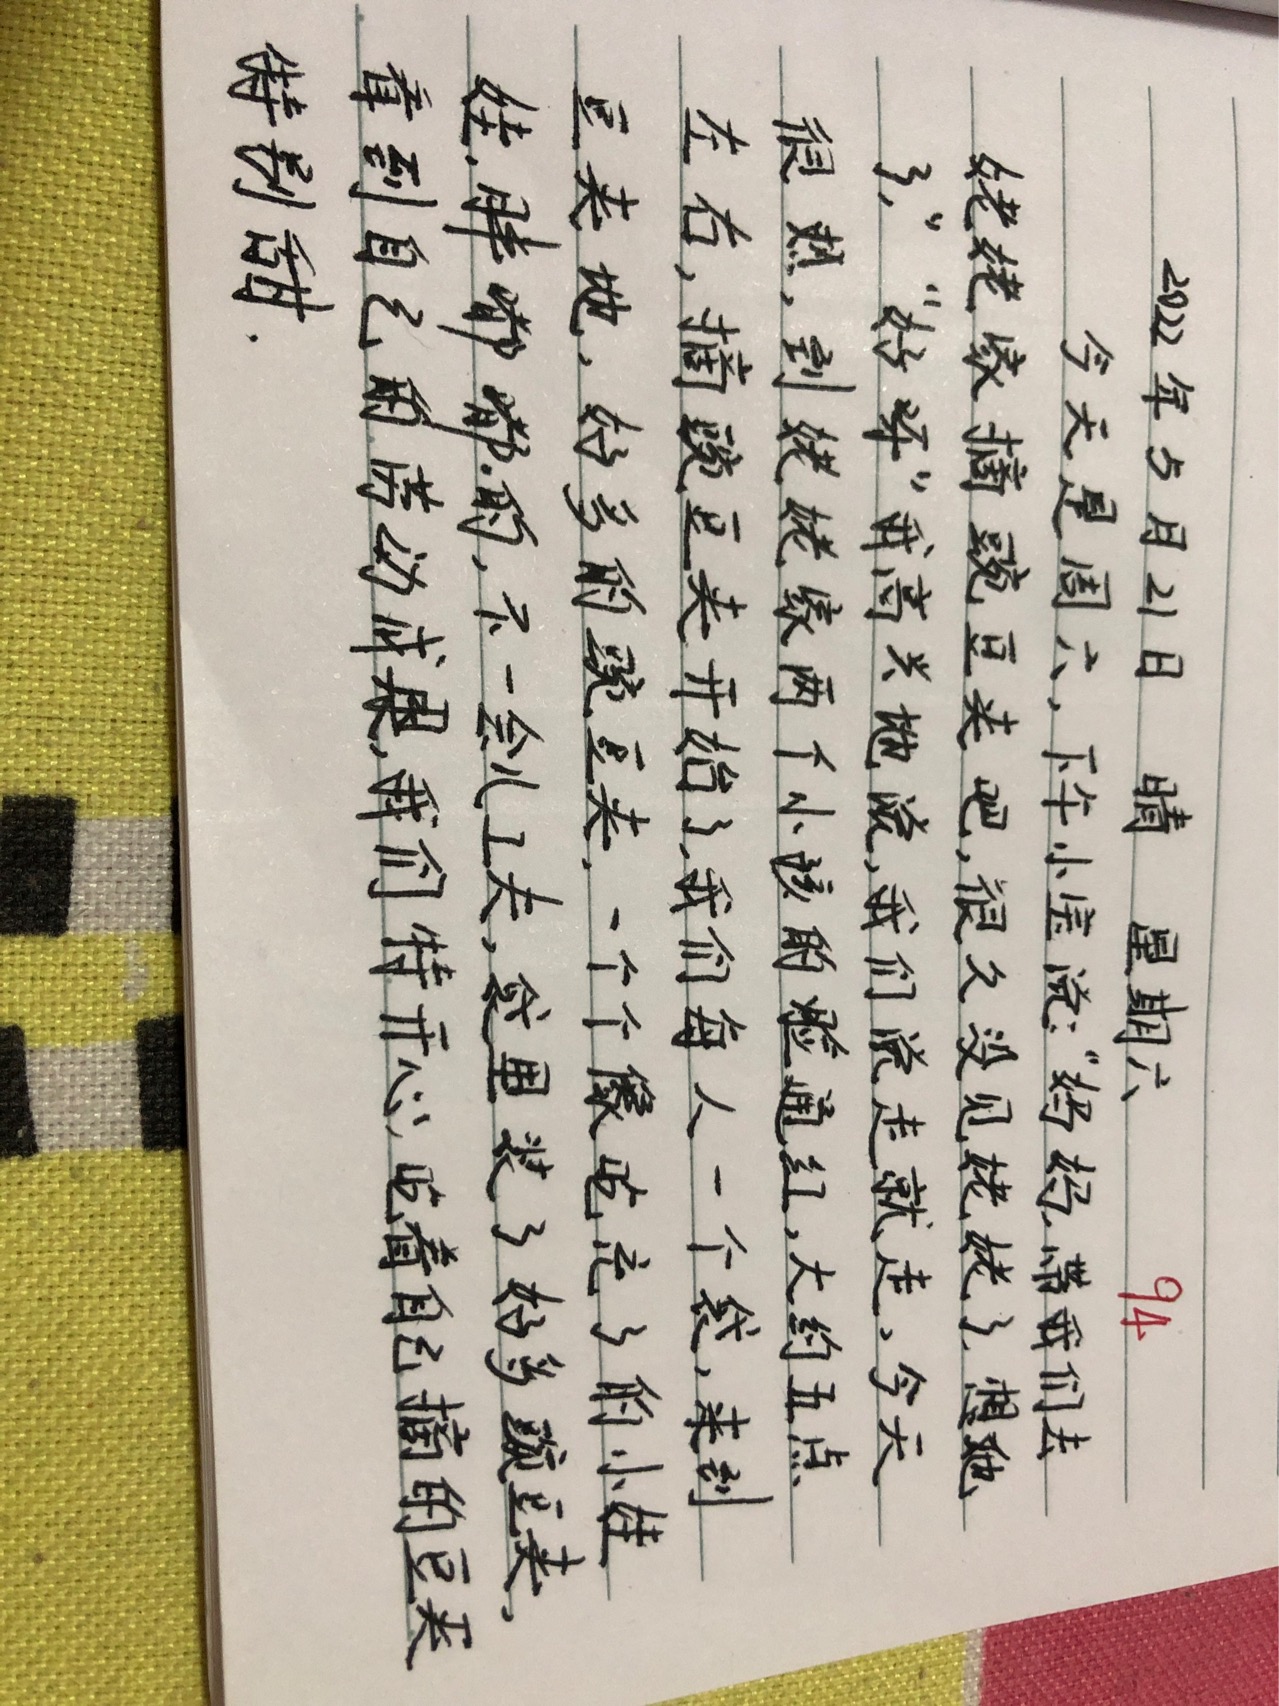 2022年5月21日 晴 星期六
94
今天是周六，下午小宝说：“妈妈，带我们去
姥姥家摘豌豆荚吧，很久没见姥姥了，想她
了，”“好呀”我高兴地说，我们说走就走，今天
很热，到姥姥姥家两个小孩的脸通红，大约五点
左右，摘豌豆荚开始了，我们每人一个袋，来到
豆荚地，好多的豌豆荚，一个个像吃应了的小娃
娃，胖嘟嘟的，不一会儿工夫，袋里装了好多豌豆荚，
看到自己的劳动成果，我们特开心，吃着自己摘的豆荚
特别甜.